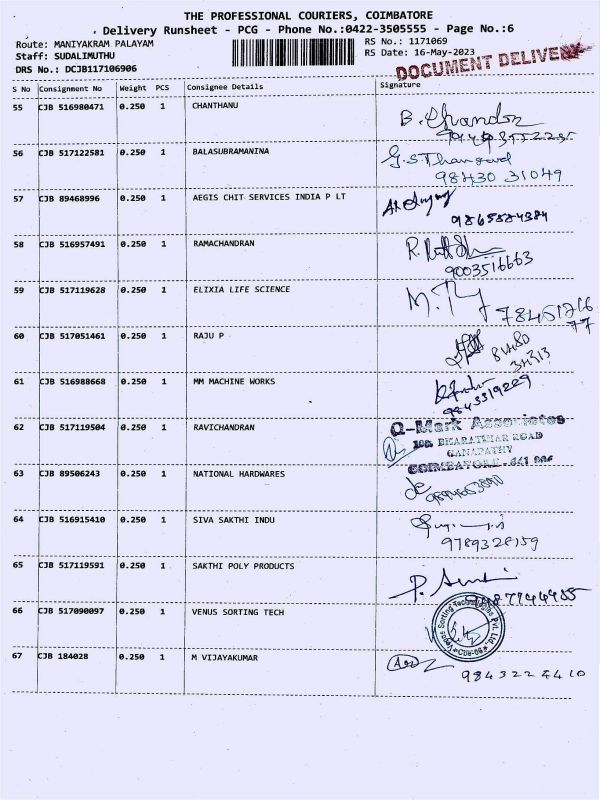 THE PROFESSIONAL COURIERS, COIMBATORE
Delivery Runsheet - PCG - Phone No.:0422-3505555 - Page No.:6
Route: MANIYAKRAM PALAYAM
RS No.: 1171069
Staff: SUDALIMUTHU
RS Date: 16-May-2023
DRS No.: DCJB117106906
DOCUMENT DELIVERY
S No Consignment No Weight PCS Consignee Details Signature
55 CJB 516980471 0.250 1 CHANTHANU
B. Chandon
56 CJB 517122581 0.250 1 BALASUBRAMANINA
98430 31049
57 CJB 89468996 0.250 1 AEGIS CHIT SERVICES INDIA P LT
9865884384
58 CJB 516957491 0.250 1 RAMACHANDRAN
9003516663
59 CJB 517119628 0.250 1 ELIXIA LIFE SCIENCE
60 CJB 517051461 0.250 1 RAJU P
61 CJB 516988668 0.250 1 MM MACHINE WORKS
9843319229
62 CJB 517119504 0.250 1 RAVICHANDRAN
Q-Mark Associates
BHARATHIAR ROAD
GANAPATHY
COIMBATORE - 641 006
63 CJB 89506243 0.250 1 NATIONAL HARDWARES
64 CJB 516915410 0.250 1 SIVA SAKTHI INDU
9789328159
65 CJB 517119591 0.250 1 SAKTHI POLY PRODUCTS
66 CJB 517090097 0.250 1 VENUS SORTING TECH
Venus Sorting Technologies Pvt. Ltd
67 CJB 184028 0.250 1 M VIJAYAKUMAR
9843224410